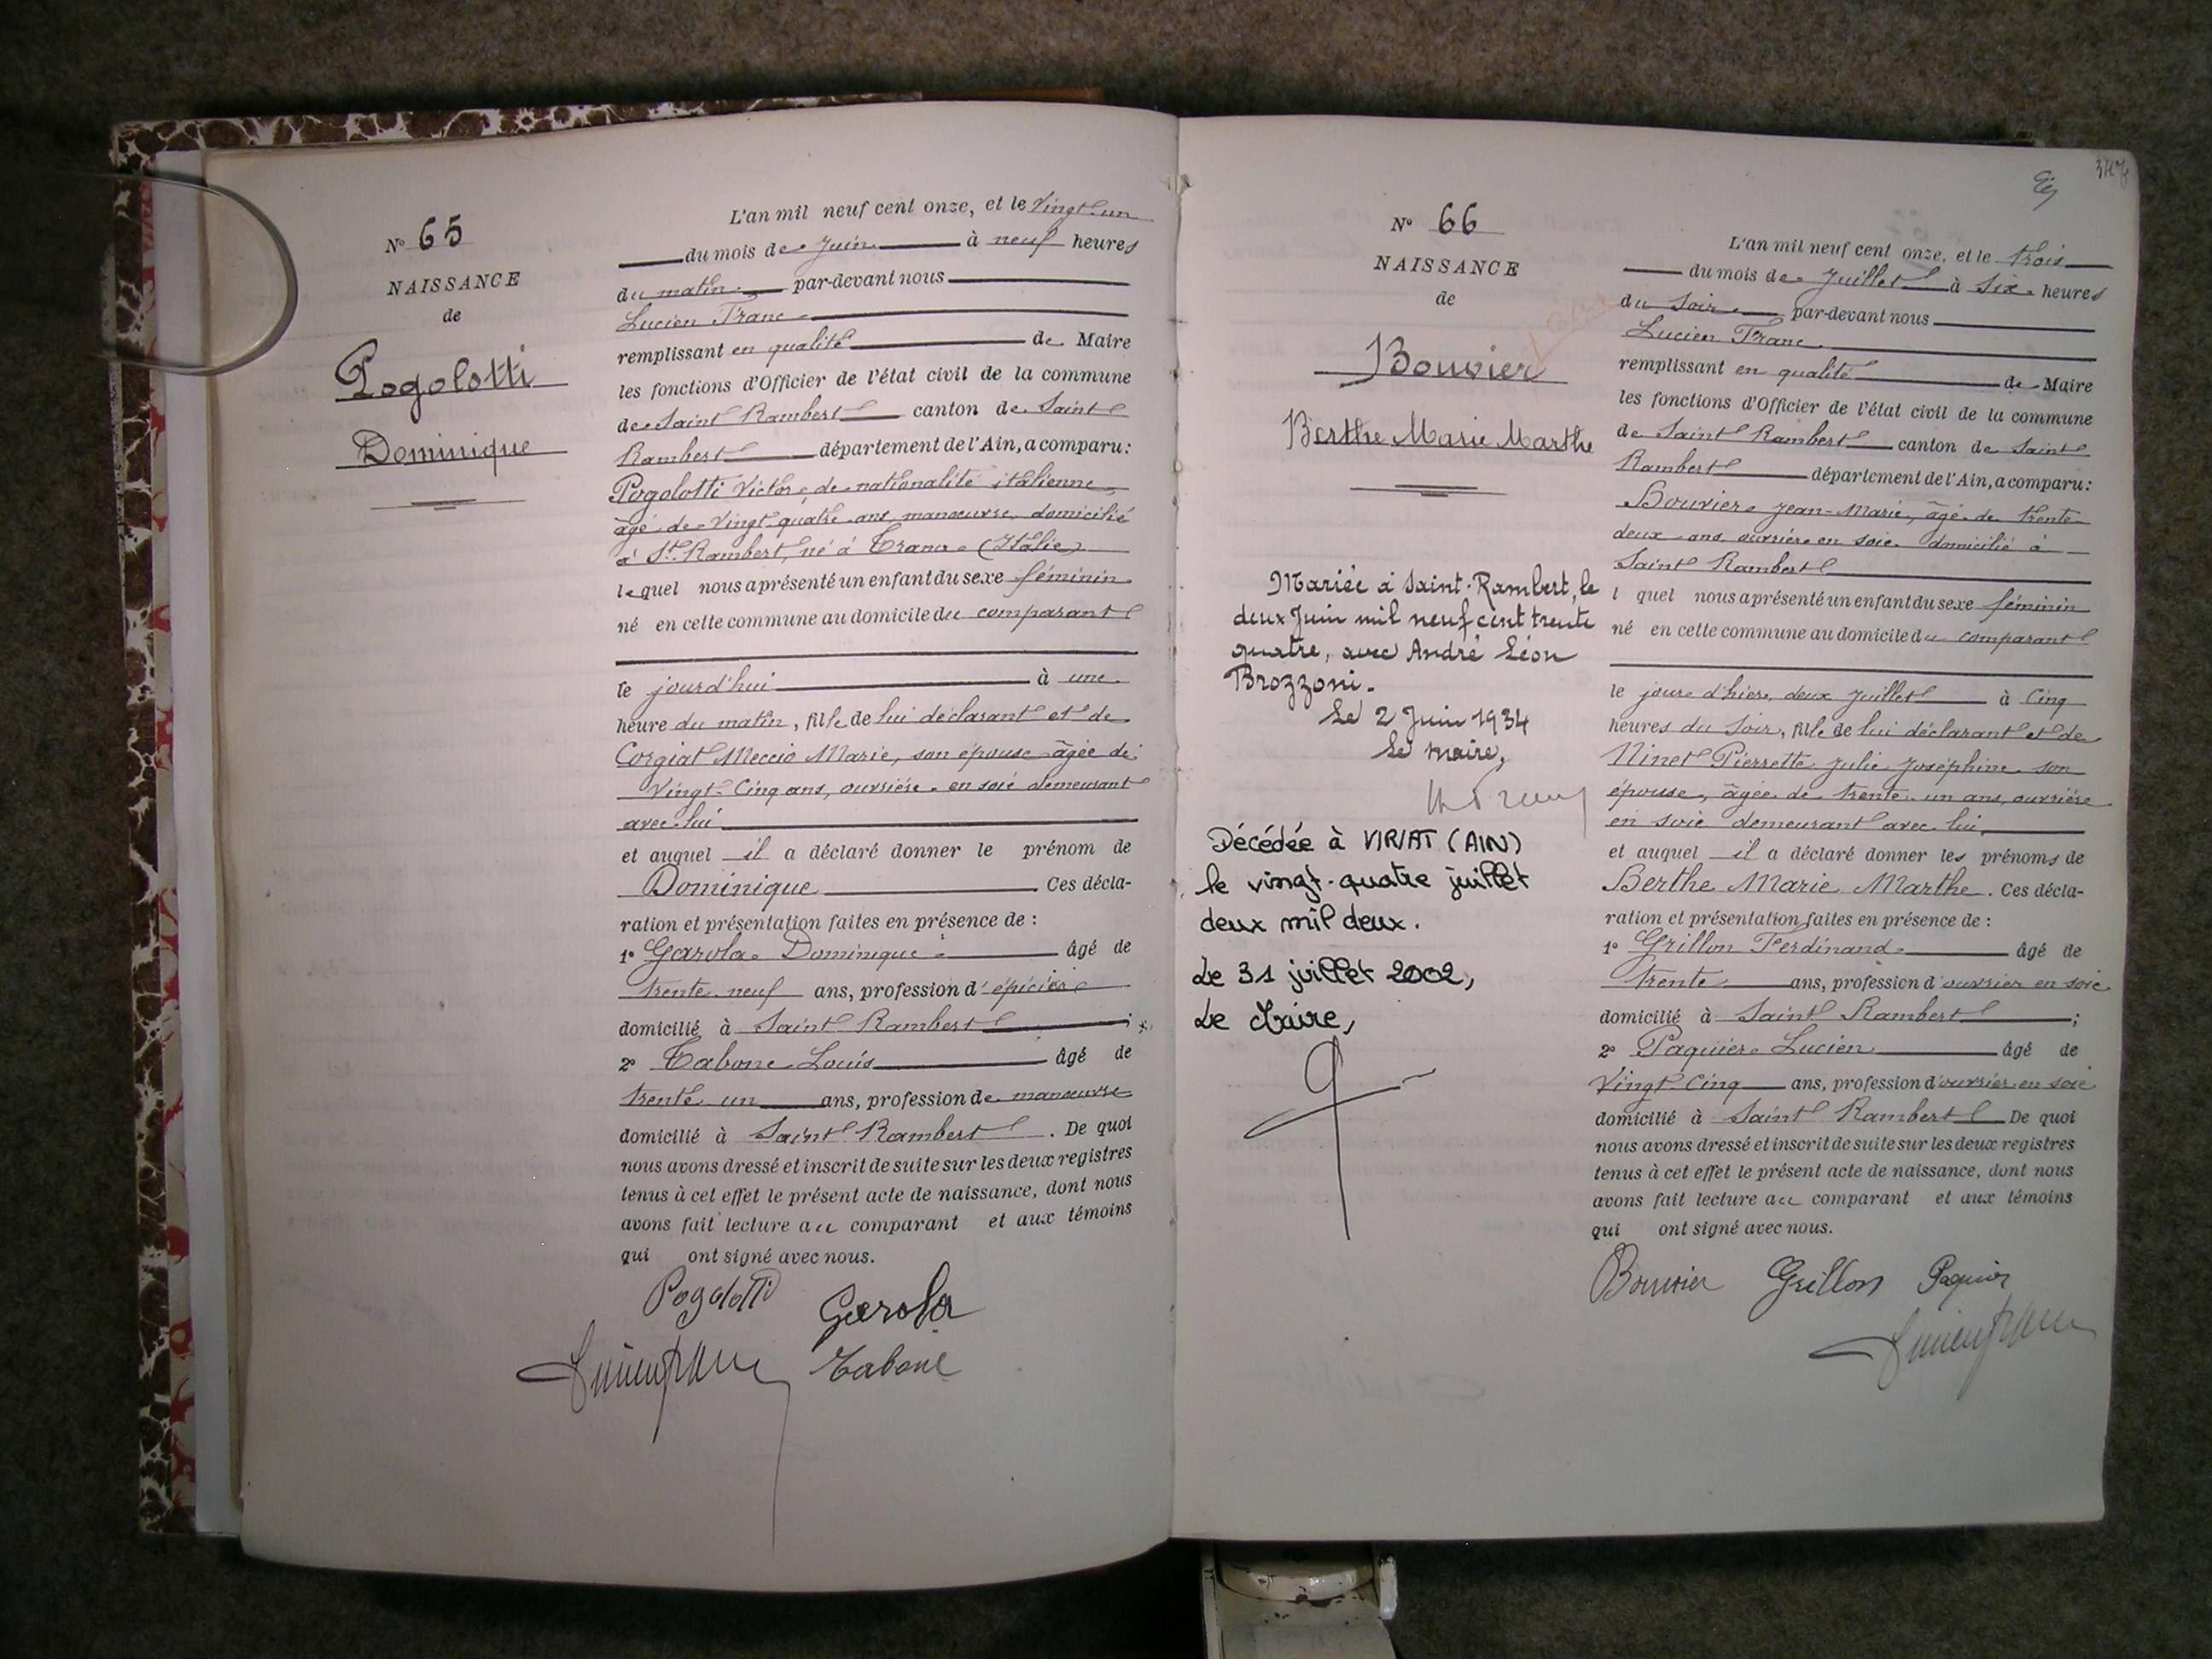 N° 65
NAISSANCE
de
Pogolotti
Dominique
L'an mil neuf cent onze, et le vingt-un
du mois de Juin à neuf heures
du matin par-devant nous
Lucien Franc
remplissant en qualité de Maire
les fonctions d'Officier de l'état civil de la commune
de Saint Rambert canton de Saint
Rambert département de l'Ain, a comparu:
Pogolotti Victor, de nationalité italienne,
âgé de vingt-quatre ans, manœuvre, domicilié
à St Rambert, né à (Italie)
lequel nous a présenté un enfant du sexe féminin
né en cette commune au domicile du comparant
le jourd'hui à une
heure du matin, fille de lui déclarant et de
Corgiat Meccio Marie, son épouse âgée de
vingt-cinq ans, ouvrière en soie demeurant
avec lui
et auquel il a déclaré donner le prénom de
Dominique Ces décla-
ration et présentation faites en présence de :
1° Garola Dominique âgé de
trente neuf ans, profession d'épicier
domicilié à Saint Rambert ;
2° Tabone Louis âgé de
trente un ans, profession de manœuvre
domicilié à Saint Rambert . De quoi
nous avons dressé et inscrit de suite sur les deux registres
tenus à cet effet le présent acte de naissance, dont nous
avons fait lecture au comparant et aux témoins
qui ont signé avec nous.
Pogolotti Garola
Lucien Franc Tabone
N° 66
NAISSANCE
de
Bouvier
Berthe Marie Marthe
Mariée à Saint-Rambert, le
deux Juin mil neuf cent trente
quatre, avec André Léon
Brozzoni.
Le 2 Juin 1934
Le maire,
Décédée à VIRIAT (AIN)
le vingt-quatre juillet
deux mil deux.
Le 31 juillet 2002,
Le Maire,
L'an mil neuf cent onze, et le trois
du mois de Juillet à six heures
du soir par-devant nous
Lucien Franc
remplissant en qualité de Maire
les fonctions d'Officier de l'état civil de la commune
de Saint Rambert canton de Saint
Rambert département de l'Ain, a comparu:
Bouvier Jean-Marie, âgé de trente
deux ans, ouvrier en soie domicilié à
Saint Rambert
l quel nous a présenté un enfant du sexe féminin
né en cette commune au domicile du comparant
le jour d'hier, deux Juillet à cinq
heures du soir, fille de lui déclarant et de
Ninet Pierrette Julie Joséphine son
épouse, âgée de trente un ans, ouvrière
en soie demeurant avec lui,
et auquel il a déclaré donner les prénoms de
Berthe Marie Marthe . Ces décla-
ration et présentation faites en présence de :
1° Grillon Ferdinand âgé de
trente ans, profession d'ouvrier en soie
domicilié à Saint Rambert ;
2° Paquier Lucien âgé de
vingt cinq ans, profession d'ouvrier en soie
domicilié à Saint Rambert De quoi
nous avons dressé et inscrit de suite sur les deux registres
tenus à cet effet le présent acte de naissance, dont nous
avons fait lecture au comparant et aux témoins
qui ont signé avec nous.
Bouvier Grillon Paquier
Lucien Franc